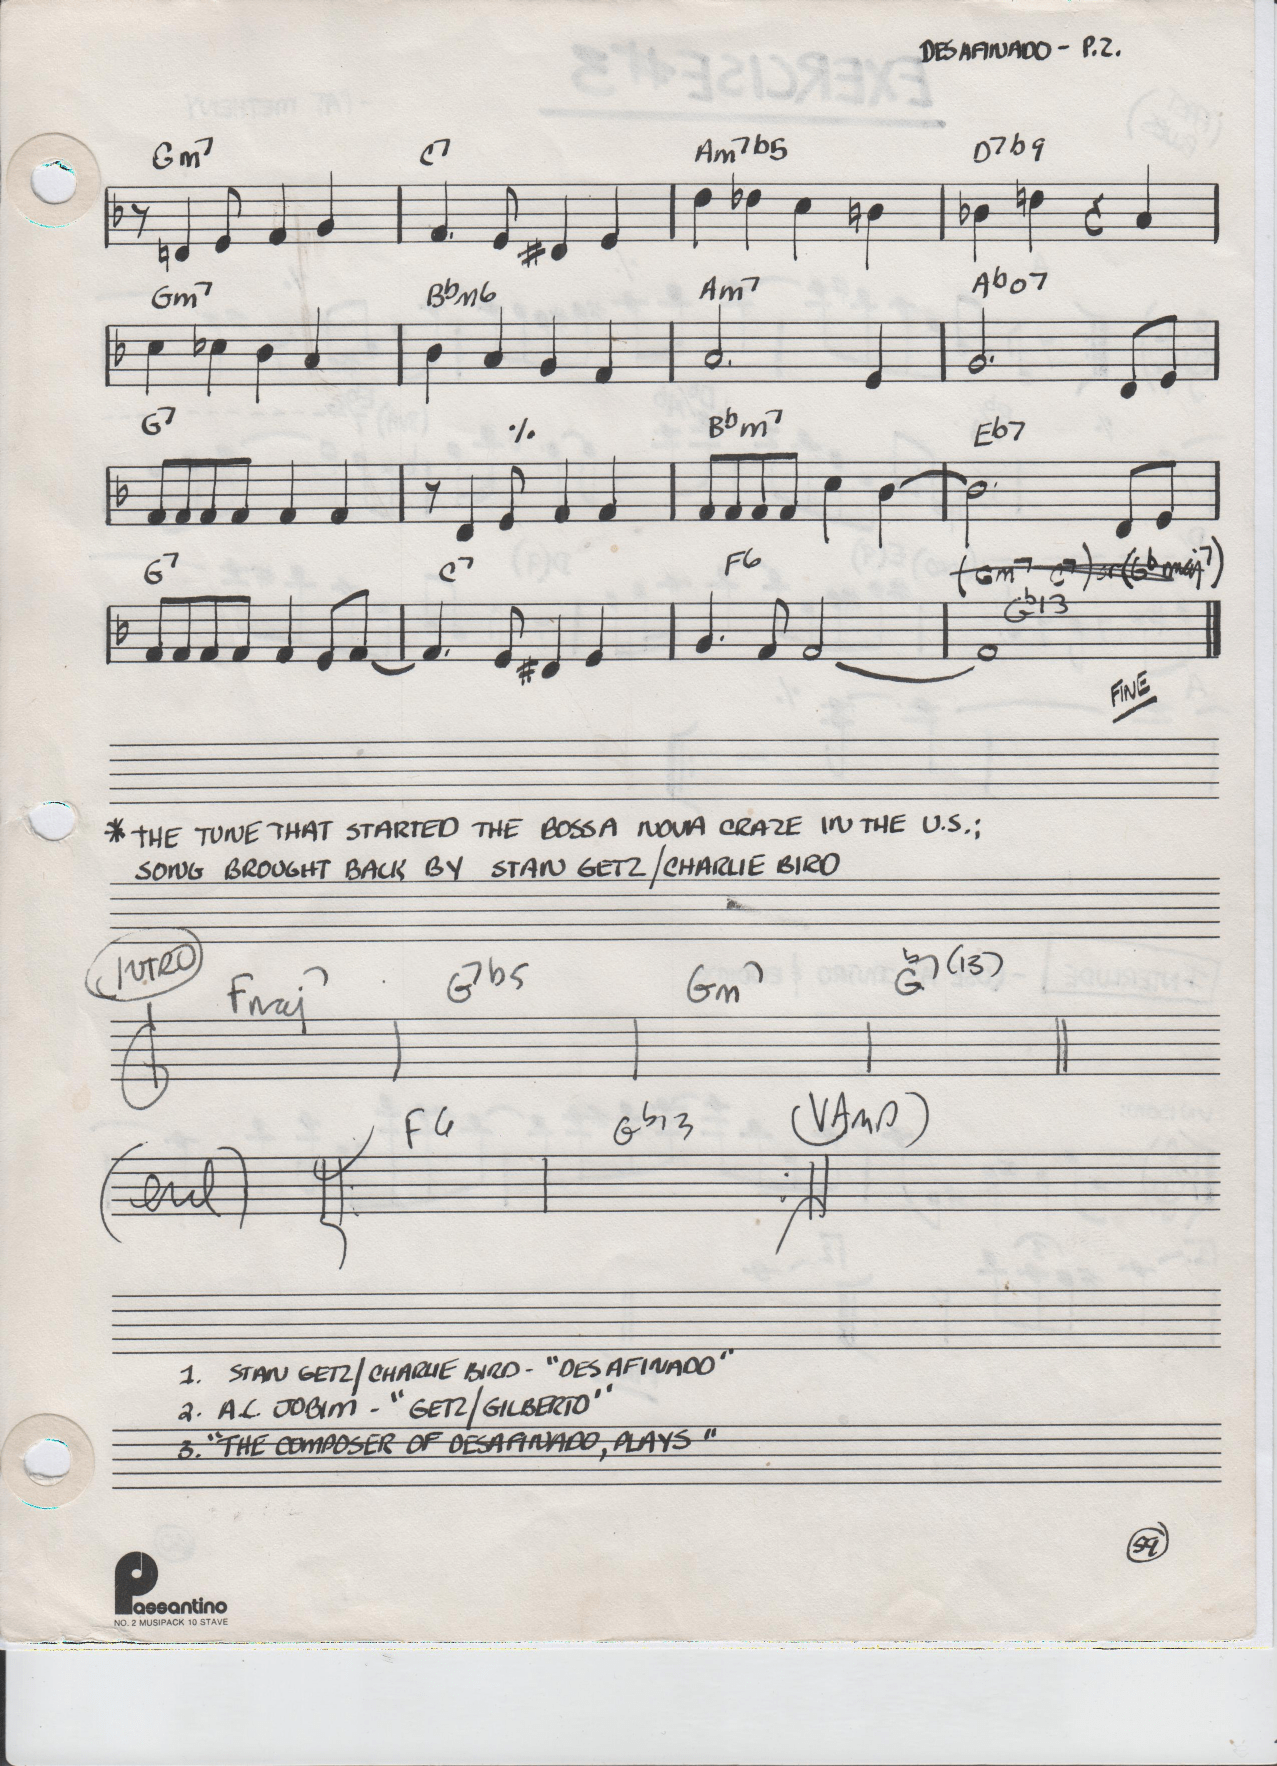 DESAFINADO - P.2.
Gm7 C7 Am7b5 D7b9
Gm7 Bbm6 Am7 Abo7
G7 ٪ Bbm7 Eb7
G7 C7 F6 (Gm7 C7) or (Gbmaj7)
Gb13
FINE
* THE TUNE THAT STARTED THE BOSSA NOVA CRAZE IN THE U.S.;
SONG BROUGHT BACK BY STAN GETZ/CHARLIE BIRD
INTRO
Fmaj7 G7b5 Gm7 Gb7(13)
F6 Gb13 (VAMP)
(end)
1. STAN GETZ/CHARLIE BIRD - "DESAFINADO"
2. A.C. JOBIM - "GETZ/GILBERTO"
3. "THE COMPOSER OF DESAFINADO, PLAYS"
59
Passantino
NO. 2 MUSIPACK 10 STAVE